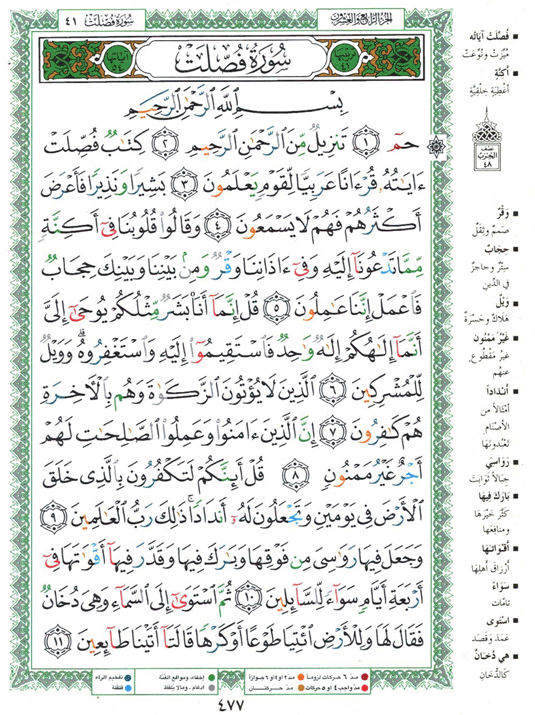 سُورَةُ فُصِّلَتْ ٤١
الجُزءُ الرَّابِعُ وَالعِشْرُونَ
سُورَةُ فُصِّلَتْ
بِسْمِ ٱللَّهِ ٱلرَّحْمَٰنِ ٱلرَّحِيمِ
حمٓ ١ تَنزِيلٌ مِّنَ ٱلرَّحْمَٰنِ ٱلرَّحِيمِ ٢ كِتَٰبٌ فُصِّلَتْ
ءَايَٰتُهُۥ قُرْءَانًا عَرَبِيًّا لِّقَوْمٍ يَعْلَمُونَ ٣ بَشِيرًا وَنَذِيرًا فَأَعْرَضَ
أَكْثَرُهُمْ فَهُمْ لَا يَسْمَعُونَ ٤ وَقَالُوا۟ قُلُوبُنَا فِىٓ أَكِنَّةٍ
مِّمَّا تَدْعُونَآ إِلَيْهِ وَفِىٓ ءَاذَانِنَا وَقْرٌ وَمِنۢ بَيْنِنَا وَبَيْنِكَ حِجَابٌ
فَٱعْمَلْ إِنَّنَا عَٰمِلُونَ ٥ قُلْ إِنَّمَآ أَنَا۠ بَشَرٌ مِّثْلُكُمْ يُوحَىٰٓ إِلَىَّ
أَنَّمَآ إِلَٰهُكُمْ إِلَٰهٌ وَٰحِدٌ فَٱسْتَقِيمُوٓا۟ إِلَيْهِ وَٱسْتَغْفِرُوهُ ۗ وَوَيْلٌ
لِّلْمُشْرِكِينَ ٦ ٱلَّذِينَ لَا يُؤْتُونَ ٱلزَّكَوٰةَ وَهُم بِٱلْءَاخِرَةِ
هُمْ كَٰفِرُونَ ٧ إِنَّ ٱلَّذِينَ ءَامَنُوا۟ وَعَمِلُوا۟ ٱلصَّٰلِحَٰتِ لَهُمْ
أَجْرٌ غَيْرُ مَمْنُونٍ ٨ ۞ قُلْ أَئِنَّكُمْ لَتَكْفُرُونَ بِٱلَّذِى خَلَقَ
ٱلْأَرْضَ فِى يَوْمَيْنِ وَتَجْعَلُونَ لَهُۥٓ أَندَادًا ۚ ذَٰلِكَ رَبُّ ٱلْعَٰلَمِينَ ٩
وَجَعَلَ فِيهَا رَوَٰسِىَ مِن فَوْقِهَا وَبَٰرَكَ فِيهَا وَقَدَّرَ فِيهَآ أَقْوَٰتَهَا فِىٓ
أَرْبَعَةِ أَيَّامٍ سَوَآءً لِّلسَّآئِلِينَ ١٠ ثُمَّ ٱسْتَوَىٰٓ إِلَى ٱلسَّمَآءِ وَهِىَ دُخَانٌ
فَقَالَ لَهَا وَلِلْأَرْضِ ٱئْتِيَا طَوْعًا أَوْ كَرْهًا قَالَتَآ أَتَيْنَا طَآئِعِينَ ١١
■ فُصِّلَتْ آيَاتُه
مُيِّزَتْ وَنُوِّعَتْ
■ أَكِنَّةٍ
أَغْطِيَةٍ خِلْقِيَّةٍ
نصف
الحزب
٤٨
■ وَقْرٌ
صَمَمٌ وَثِقَلٌ
■ حِجَابٌ
سِتْرٌ وَحَاجِزٌ
فِي الدِّين
■ وَيْلٌ
هَلَاكٌ وَحَسْرَةٌ
■ غَيْرُ مَمْنُون
غَيْرُ مَقْطُوعٍ
عَنهم
■ أَنْدَاداً
أَمْثَالاً من
الأَصْنَام
تَعْبُدُونَها
■ رَوَاسِيَ
جِبَالاً ثَوَابِتَ
■ بَارَكَ فِيها
كَثَّرَ خَيْرَهَا
ومنافعها
■ أَقْوَاتَهَا
أَرْزَاقَ أَهْلِهَا
■ سَوَاءً
تَامَّات
■ اسْتَوَى
عَمَدَ وَقَصَدَ
■ هِيَ دُخَانٌ
كَالدُّخَانِ
مدّ ٦ حركات لزوماً مدّ ٢ أو ٤ أو ٦ جوازاً إخفاء، ومواقع الغُنَّة تفخيم الراء
مدّ واجب ٤ أو ٥ حركات مدّ حركتان إدغام، ومالا يُلفظ قلقلة
٤٧٧